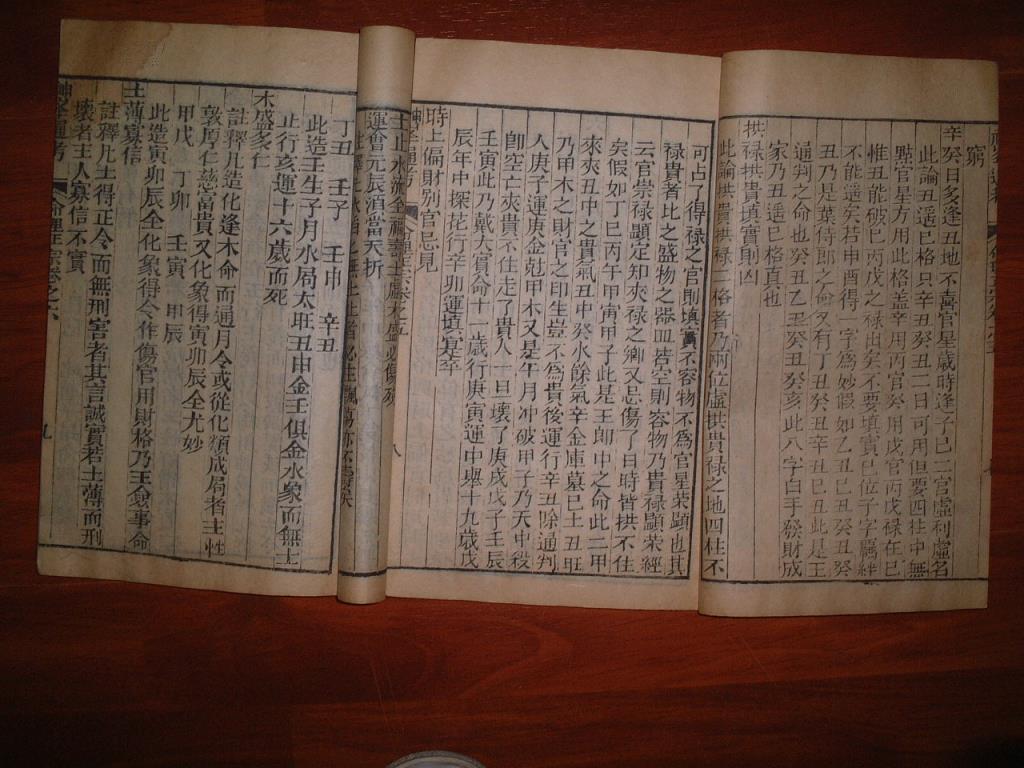 窮
辛癸日多逢丑地不喜官星歲時逢子巳二宮虛利虛名
此論丑遥巳格只辛丑癸丑二日可用但要四柱中無
點官星方用此格盖辛用丙官癸用戊官丙戊禄在巳
惟丑能破巳丙戊之禄出矣不要填實巳位子字羈絆
不能遥矣若申酉得一字爲妙假如乙丑己丑癸丑癸
丑乃是葉侍郎之命又有丁丑癸丑辛丑巳丑此是王
通判之命也
家乃丑遥巳格真也
拱禄拱貴填實則凶
此論拱貴拱禄二格者乃兩位虛拱貴禄之地四柱不
可占了得禄之官則填實不容物不爲官星榮顯也其
禄貴者比之盛物之器皿皆空則容物乃貴禄顯榮經
云官崇禄顯定知夾禄之鄉又忌傷了日時皆拱不住
矣假如丁巳丙午甲寅甲子此是王郎中之命此二甲
來夾丑中之貴氣丑中癸水餘氣辛金庫墓巳土丑旺
乃甲木之財官之印生豈不爲貴後運行辛丑除通判
人庚子運庚金尅甲木又是午月冲破甲子乃天中殺
卽空亡夾貴不住走了貴人一旦壞了庚戌戊子壬辰
壬寅此乃戴大賔命十一歲行庚寅運中舉十九歲戊
辰年中探花行辛卯運填寔卒
時上偏財别官忌見
神峯通考
八
運會元辰須當夭折
丁丑 壬子 壬申 辛丑
此造壬生子月水局太旺丑申金壬俱金水象而無土
止行亥運十六歲而死
木盛多仁
註釋凡造化逢木命而通月令或從化類成局者主性
敦厚仁慈富貴又化象得寅卯辰全尤妙
甲戌 丁卯 壬寅 甲辰
此造寅卯辰全化象得令作傷官用財格乃王僉事命
土薄寡信
註釋凡土得正令而無刑害者其言誠實若土薄而刑
壞者主人寡信不實
神峯通考
命理
卷之六
九